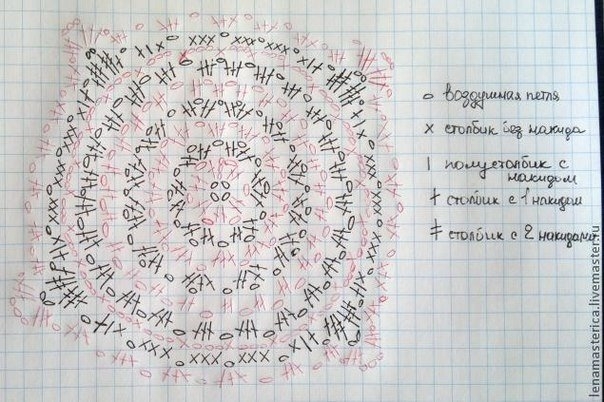 воздушная петля
х столбик без накида
полустолбик с
накидом
столбик с 1 накидом
столбик с 2 накидами
lenamasterica.livemaster.ru